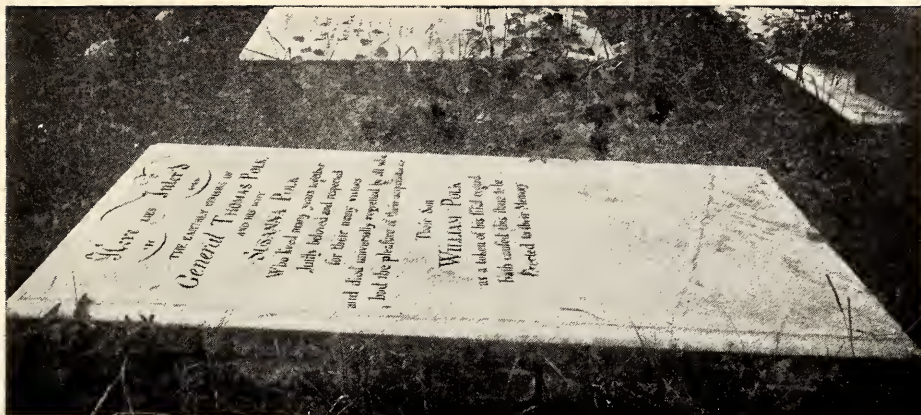 Here lies Inter'd
THE EARTHLY REMAINS OF
General THOMAS POLK,
AND HIS WIFE
SUSANNA POLK
Who lived many years together
Justly beloved and respected
for their many virtues
and died universally regretted by all who
had the pleasure of their acquaintance
Their Son
WILLIAM POLK
as a token of his filial regard
hath caused this stone to be
Erected to their Memory